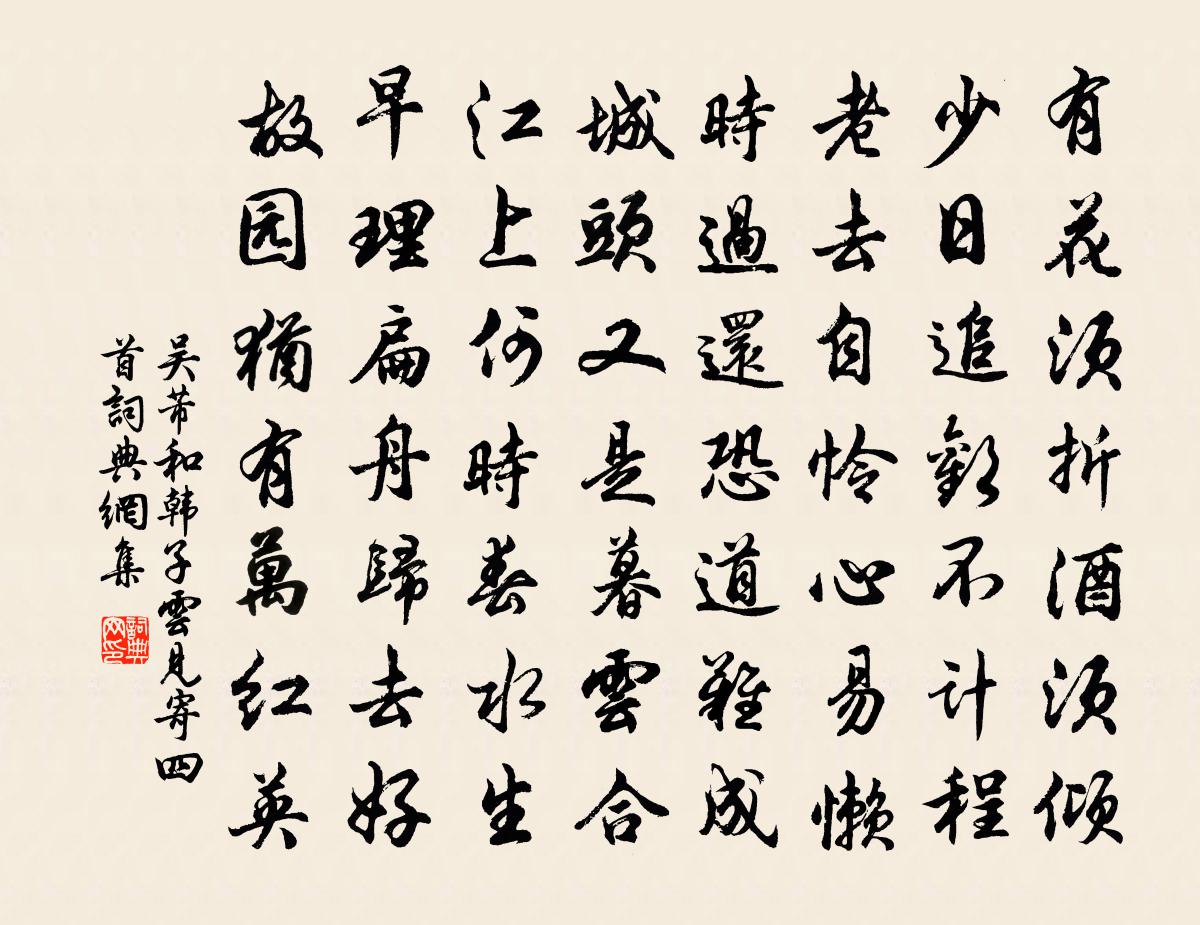 有花须折酒须倾
少日追歡不计程
老去自怜心易懒
時過還恐道難成
城頭又是暮雲合
江上何時春水生
早理扁舟歸去好
故园猶有萬红英
吴芾和韩子雲见寄四
首詞典網集
詞典
网印